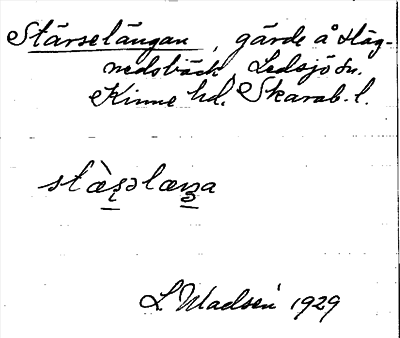 Stärselängan, gärde å Häg-
nedsbäck, Ledsjö sn.
Kinne hd. Skarab. l.
stæ̀ʂəlæŋa
L. Madsén 1929